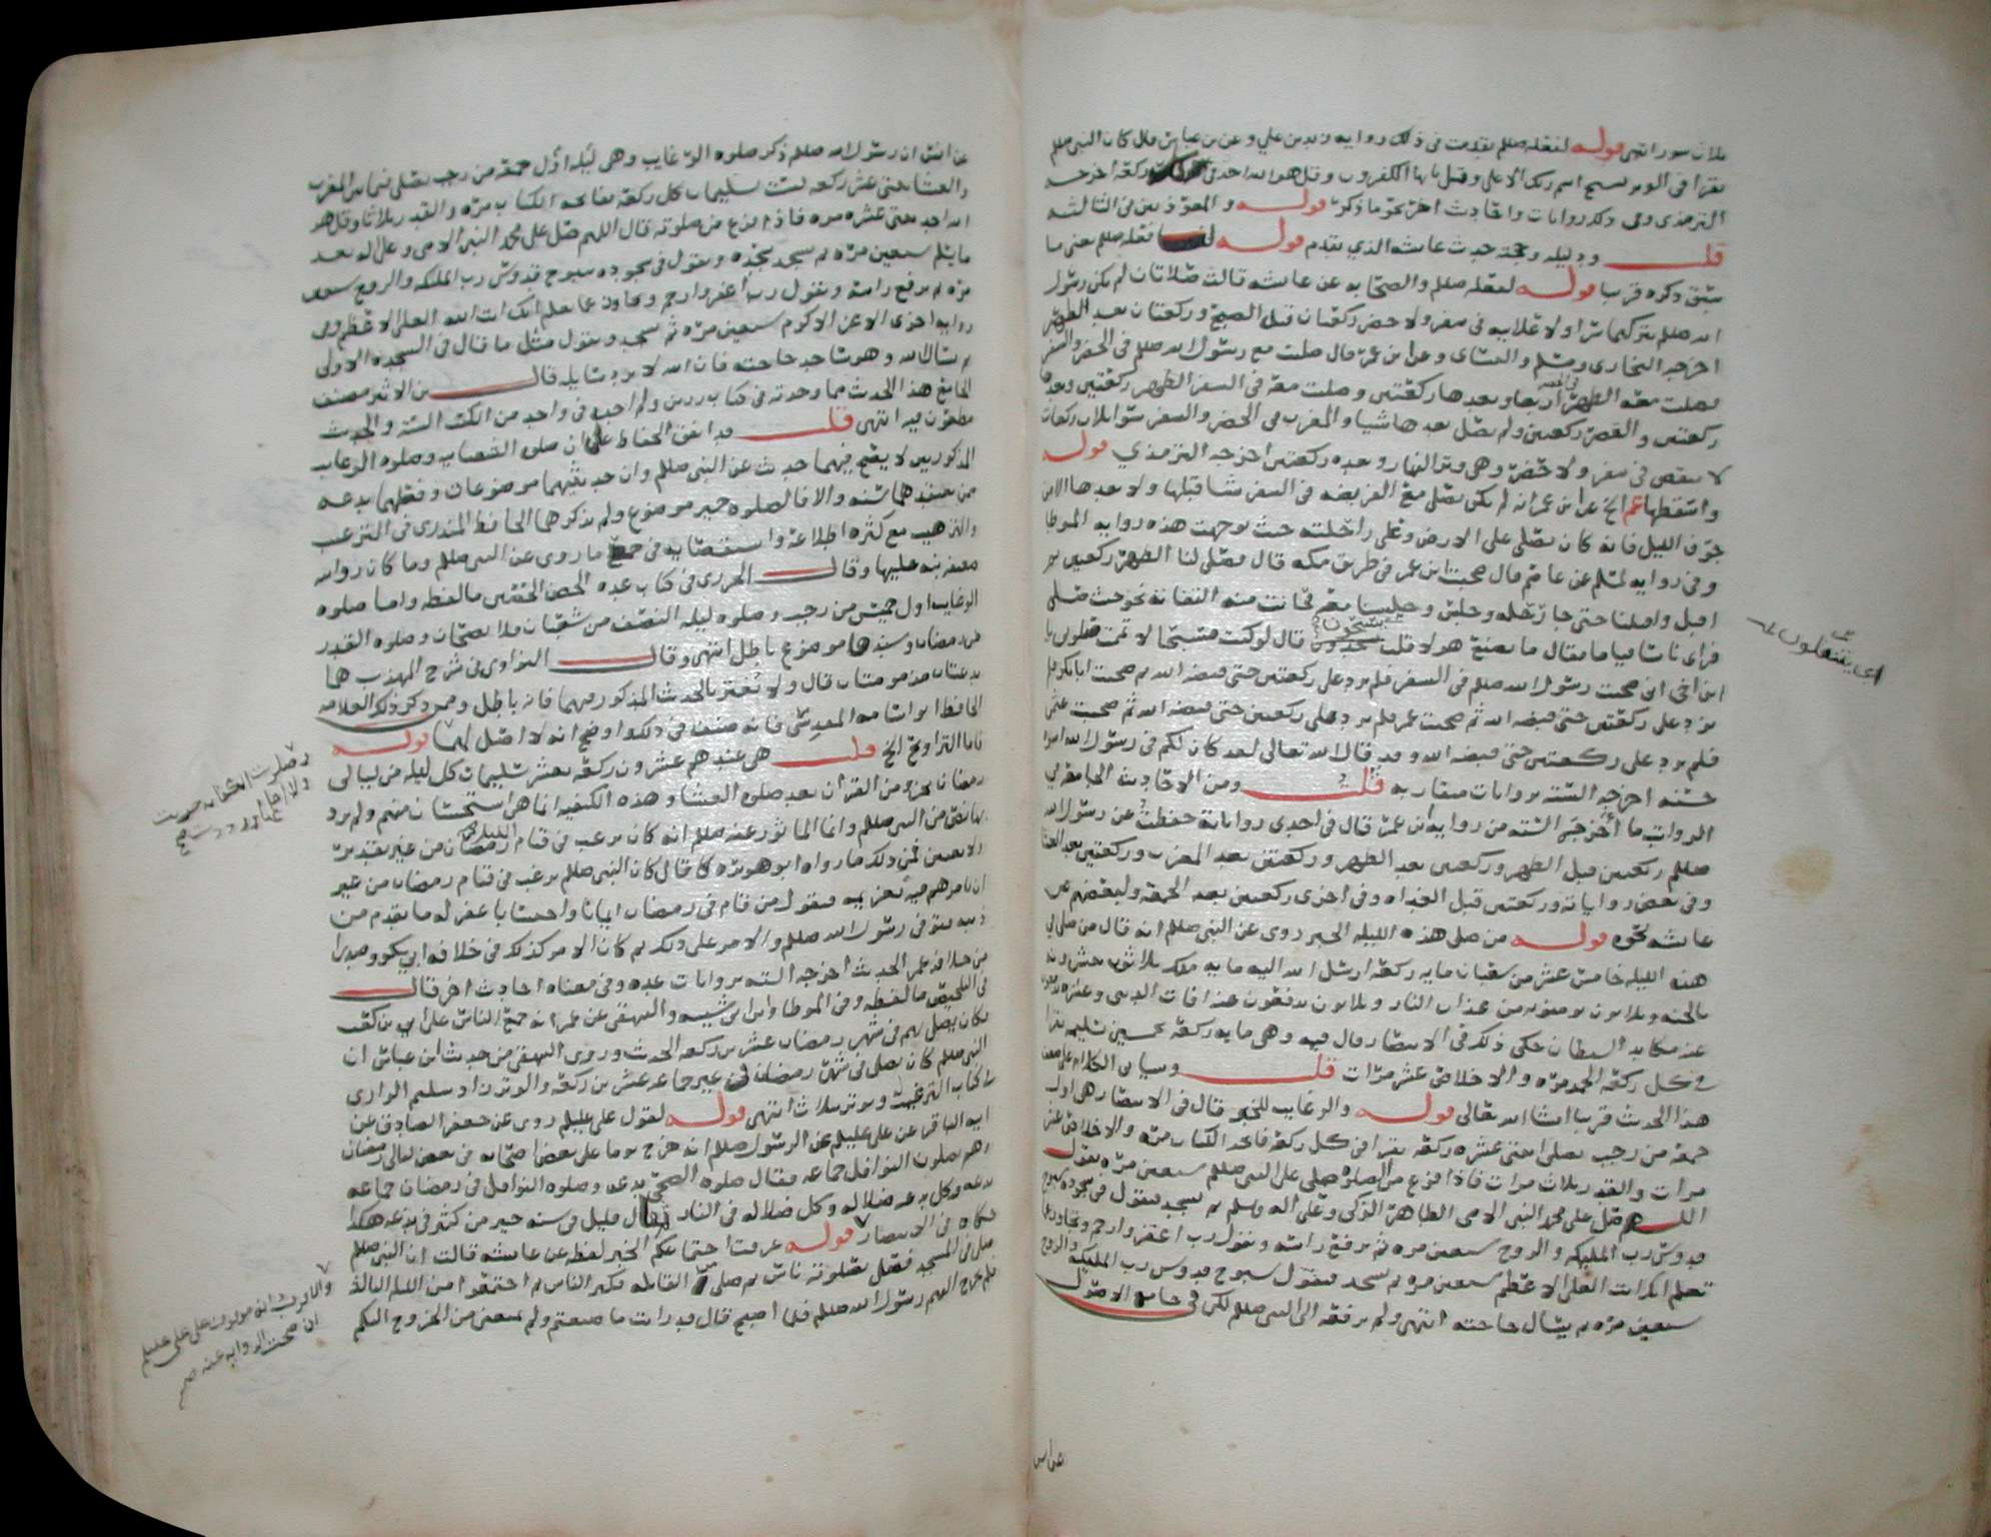 ثلاث سور انتهى قوله لفعله صللم تقدمت في ذلك رواية زيد بن علي وعن بن عباس قال كان النبي صللم
يقرا في الوتر بسبح اسم ربك الاعلى وقل يا ايها الكفرون وقل هو الله احد في ركعة اخرجه
الترمذي وفي ذلك روايات واحاديث اخر نحو ما ذكر قوله والمعوذتين في الثالثة
قلت ودليله وحجته حديث عائشة الذي تقدم قوله فعله صللم يعني ما
سبق ذكره قريبا قوله لفعله صللم والصحابه عن عائشه قالت صلاتان لم يكن رسول
الله صللم يتركهما سرا ولا علانيه في سفر ولا حضر ركعتان قبل الصبح وركعتان بعد العصر
اخرجه البخاري ومسلم والنساي وعن ابن عمر قال صليت مع رسول الله صللم في الحضر والسفر
فصليت معه الظهر في الحضر اربعا وبعدها ركعتين وصليت معه في السفر الظهر ركعتين وبعدها
ركعتين والعصر ركعتين ولم يصل بعدها شيا والمغرب في الحضر والسفر سوا ثلاث ركعات
لا ينقص في سفر ولا حضر وهي وتر النهار وبعده ركعتين اخرجه الترمذي قوله
واسقطها الخ عن ابن عمر انه لم يكن يصلي مع الفريضه في السفر شيا قبلها ولا بعدها الا من
جوف الليل فانه كان يصلي على الارض وعلى راحلته حيث توجهت هذه رواية الموطا
وفي رواية لمسلم عن عاصم قال صحبت ابن عمر في طريق مكه قال فصلى لنا الظهر ركعتين ثم
اقبل واقبلنا حتى جا رحله وجلس وجلسنا معه فحانت منه التفاتة نحو حيث صلى
فراى ناسا قياما فقال ما يصنع هولا قلت يسبحون قال لو كنت مسبحا لاتممت صلوتي يا
ابن اخي اني صحبت رسول الله صللم في السفر فلم يزد على ركعتين حتى قبضه الله ثم صحبت ابا بكر فلم
يزد على ركعتين حتى قبضه الله ثم صحبت عمر فلم يزد على ركعتين حتى قبضه الله ثم صحبت عثمن
فلم يزد على ركعتين حتى قبضه الله وقد قال الله تعالى لقد كان لكم في رسول الله اسوة
حسنه اخرجه السته بروايات متقاربه قلت ومن الاحاديث الجامعة في
الرواتب ما اخرجه السته من رواية ابن عمر قال في احدى رواياته حفظت عن رسول الله
صللم ركعتين قبل الظهر وركعتين بعد الظهر وركعتين بعد المغرب وركعتين بعد العشا
وفي بعض رواياته وركعتين قبل الغداه وفي اخرى ركعتين بعد الجمعه ولبعضهم عن
عائشه نحوه قوله من صلى هذه الليله الخبر روي عن النبي صللم انه قال من صلى في
هذه الليله خامس عشر من شعبان مايه ركعة ارسل الله اليه مايه ملك ثلاثون يبشرونه
بالجنه وثلاثون يومنونه من عذاب النار وثلاثون يدفعون عنه افات الدنيى وعشره يدفعون
عنه مكايد الشيطان حكى ذلك في الانتصار قال فيه وهي مايه ركعة بخمسين تسليمه يقرا
في كل ركعة الحمد مره والاخلاص عشر مرات قلت وسياتي الكلام على معنى
هذا الحديث قريبا انشا الله تعالى قوله والرغايب للخبر قال في الانتصار هي اول
جمعة من رجب يصلى اثنتي عشره ركعة يقرا في كل ركعة فاتحة الكتاب مره والاخلاص عشر
مرات والقدر ثلاث مرات فاذا فرغ من الصلوه صلى على النبي صللم سبعين مره يقول
اللهم صل على محمد النبي الامي الطاهر الزكي وعلى آله وسلم ثم يسجد فيقول في سجوده سبوح
قدوس رب المليكه والروح سبعين مره ثم يرفع راسه ويقول رب اغفر وارحم وتجاوز عما
تعلم انك انت العلي الاعظم سبعين مره ثم يسجد فيقول سبوح قدوس رب المليكه والروح
سبعين مره ثم يسال حاجته انتهى ولم يرفعه الى النبي صللم لكن في جامع الاصول
اي يتنفلون
عن انس
عن انس ان رسول الله صللم ذكر صلوه الرغايب وهي ليله اول جمعه من رجب يصلي فيما بين المغرب
والعشا اثنتي عشر ركعه بست تسليمات كل ركعة بفاتحه الكتاب مره والقدر ثلاثا وقل هو
الله احد ثنتي عشره مره فاذا فرغ من صلوته قال اللهم صل على محمد النبي الامي وعلى اله بعد
ما يسلم سبعين مره ثم يسجد سجده ويقول في سجوده سبوح قدوس رب المليكه والروح سبعين
مره ثم يرفع راسه ويقول رب اغفر وارحم وتجاوز عما تعلم انك انت الله العلي الاعظم وفي
رواية اخرى الاعز الاكرم سبعين مره ثم يسجد ويقول مثل ما قال في السجده الاولى
ثم يسال الله وهو ساجد حاجته فان الله لا يرد سايله قال بن الاثير مصنف
الجامع هذا الحديث مما وجدته في كتاب رزين ولم اجده في واحد من الكتب السته والحديث
مطعون فيه انتهى قلت قد اتفق الحفاظ على ان صلوه النصف وصلوه الرغايب
المذكورين لا يصح فيهما حديث عن النبي صللم وان حديثيهما موضوعان وفعلهما بدعه
ممن يعتقدهما سنه والا فالصلوه خير موضوع ولم يذكرهما الحافظ المنذري في الترغيب
والترهيب مع كثره اطلاعه واستقصايه في جمع ما روي عن النبي صللم وما كان رواته
ضعيف نبه عليها وقال الجزري في كتاب عده الحصن الحصين ما لفظه واما صلوه
الرغايب اول خميس من رجب وصلوه ليله النصف من شعبان فلا يصحان وصلوه القدر
من رمضان وسندها موضوع باطل انتهى وقال النواوي في شرح المهذب هما
بدعتان مذمومتان قال ولا تغتر بالحديث المذكور فيهما فانه باطل وممن ذكر ذلك العلامه
الحافظ ابو شامه المقدسي فانه صنف في ذلك واوضح انه لا اصل لهما قوله
فاما التراويح الخ قلت هي عندهم عشرون ركعة بعشر تسليمات كل ليله من ليالي
رمضان بجزو من القران بعد صلوه العشا وهذه الكيفيه انما هي استحسان منهم ولم يرد
بها نص من النبي صللم وانما الماثور عنه صللم انه كان يرغب في قيام رمضان من غير تقدير
ولا تعيين فمن ذلك ما رواه ابو هريره قال كان النبي صللم يرغب في قيام رمضان من غير
ان يامرهم فيه بعزيمه فيقول من قام رمضان ايمانا واحتسابا غفر له ما تقدم من
ذنبه فتوفي رسول الله صللم والامر على ذلك ثم كان الامر كذلك في خلافه ابي بكر وصدرا
من خلافه عمر الحديث اخرجه السته بروايات عده وفي معناه احاديث اخر قال
في التلخيص ما لفظه وفي الموطا وابن ابي شيبه والبيهقي عن عمر انه جمع الناس على ابي بن كعب
فكان يصلي بهم في شهر رمضان عشرين ركعه الحديث وروى البيهقي من حديث ابن عباس ان
النبي صللم كان يصلي في شهر رمضان في غير جماعه عشرين ركعة والوتر زاد سليم الرازي
في كتاب الترغيب ويوتر بثلاث انتهى قوله لقول علي عليلم روي عن جعفر الصادق عن
ابيه الباقر عن علي عليلم عن الرسول صللم انه خرج يوما على بعض اصحابه في بعض ليالي رمضان
وهم يصلون النوافل جماعه فقال صلوه الضحى بدعه وصلوه النوافل في رمضان جماعه
بدعه وكل بدعه ضلاله وكل ضلاله في النار ثم قال قليل في سنه خير من كثير في بدعه هكذا
حكاه في الانتصار قوله عرفت اجتماعكم الخبر لفظه عن عائشه قالت ان النبي صللم
صلى في المسجد فصلى بصلوته ناس ثم صلى القابله فكثر الناس ثم اجتمعوا من الليله الثالثه
فلم يخرج اليهم رسول الله صللم فلما اصبح قال قد رايت ما صنعتم ولم يمنعني من الخروج اليكم
والاقرب انه موقوف على علي عليلم
ان صحت الروايه عنه